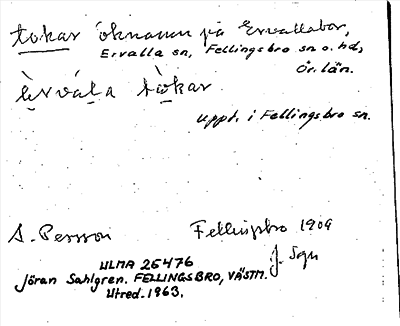 tokar öknamn på Ervallabor,
Ervalla sn, Fellingsbro sn o. hd,
Ör. län.
èrvála tòkar
uppt. i Fellingsbro sn.
S. Persson Fellingsbro 1909
J. Sgn
ULMA 25476
Jöran Sahlgren. FELLINGSBRO, VÄSTM.
Utred. 1963.